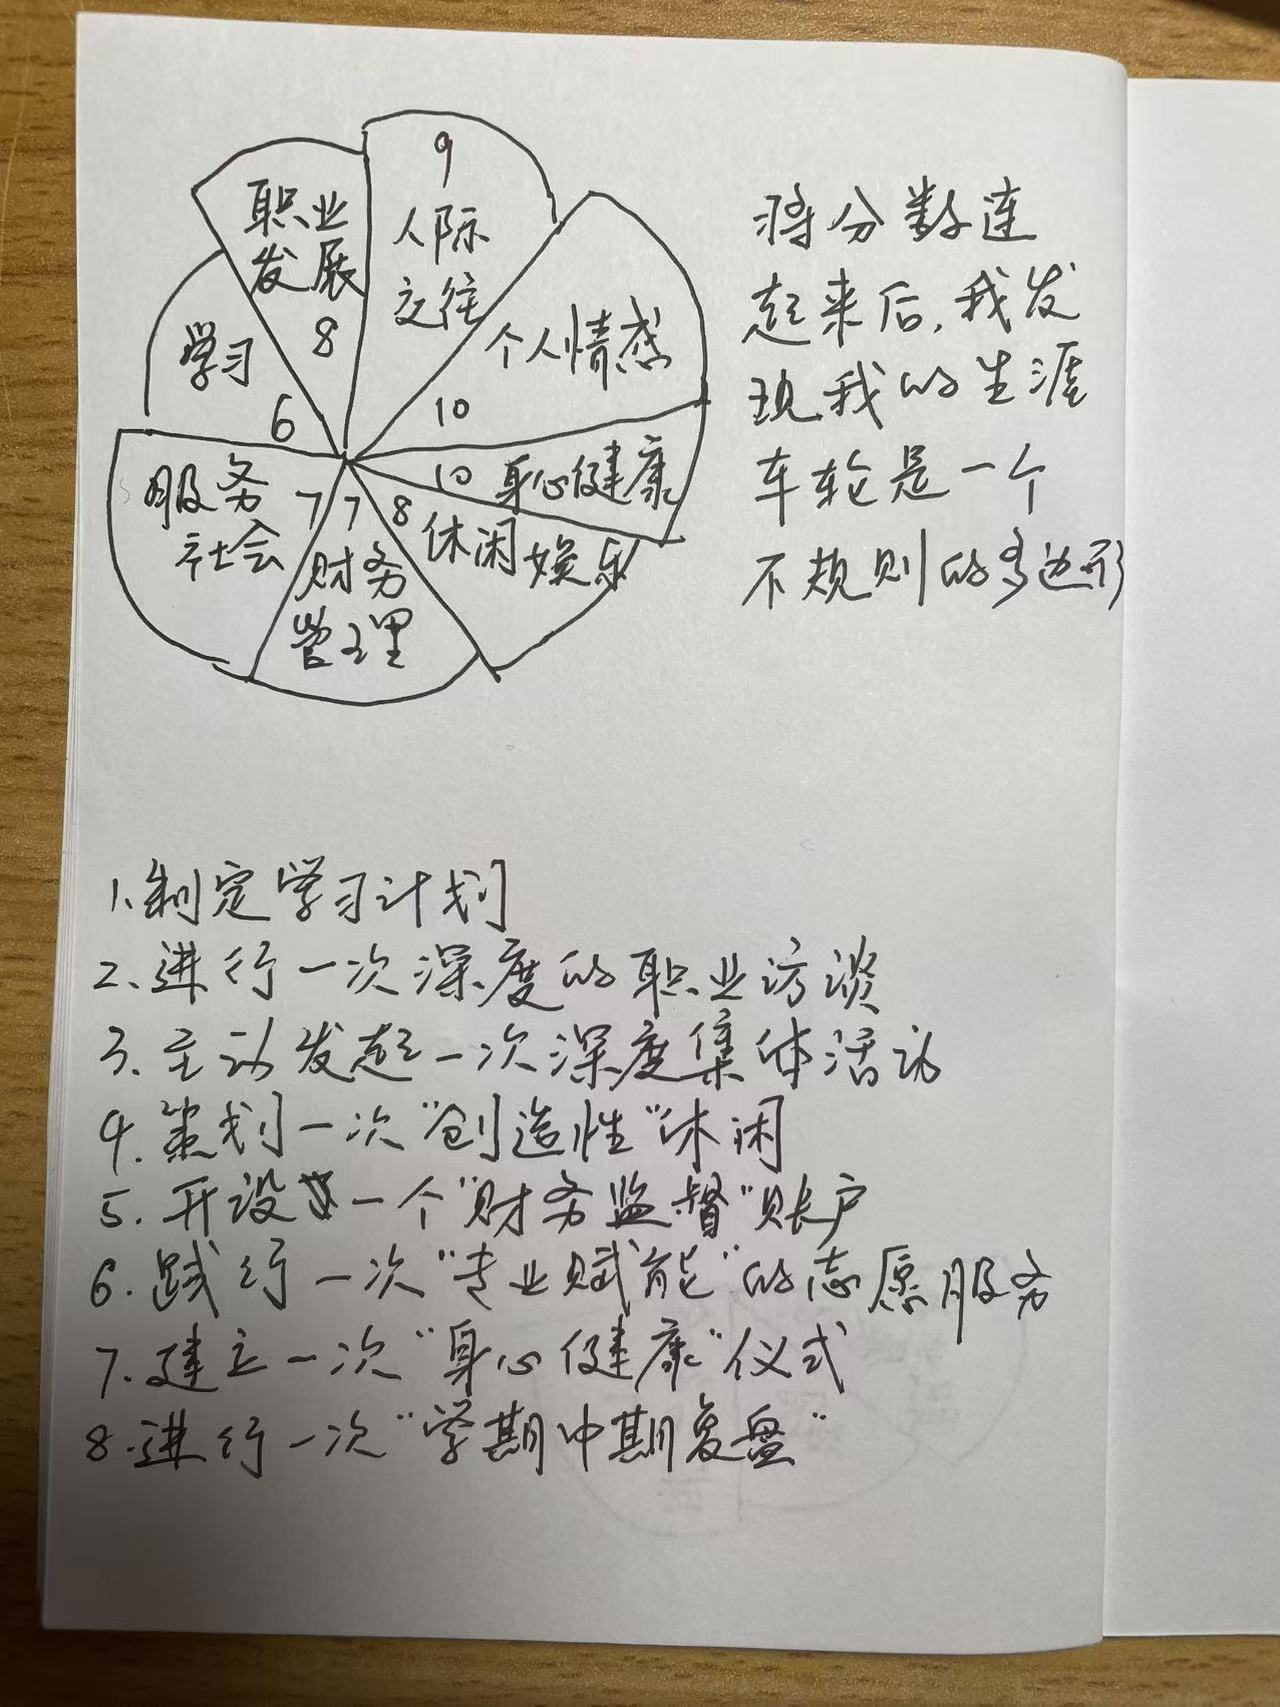 9
人际
交往
职业
发展
8
个人情感
10
学习
6
10 身心健康
服务
社会
7
7
财务
管理
8
休闲娱乐
将分数连
起来后,我发
现我的生涯
车轮是一个
不规则的多边形
1.制定学习计划
2.进行一次深度的职业访谈
3.主动发起一次深度集体活动
4.策划一次“创造性”休闲
5.开设一个“财务监督”账户
6.践行一次“专业赋能”的志愿服务
7.建立一次“身心健康”仪式
8.进行一次“学期中期复盘”